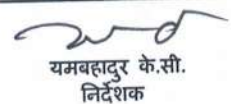 यमबहादुर के.सी.
निर्देशक